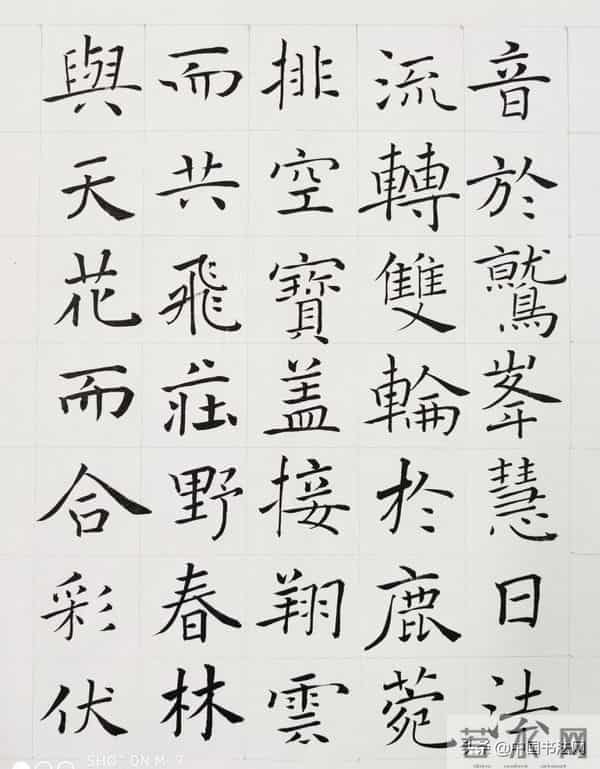 音於鷲峯慧日法
流轉雙輪於鹿菀
排空寶盖接翔雲
而共飛莊野春林
與天花而合彩伏
头条 @中国书法网